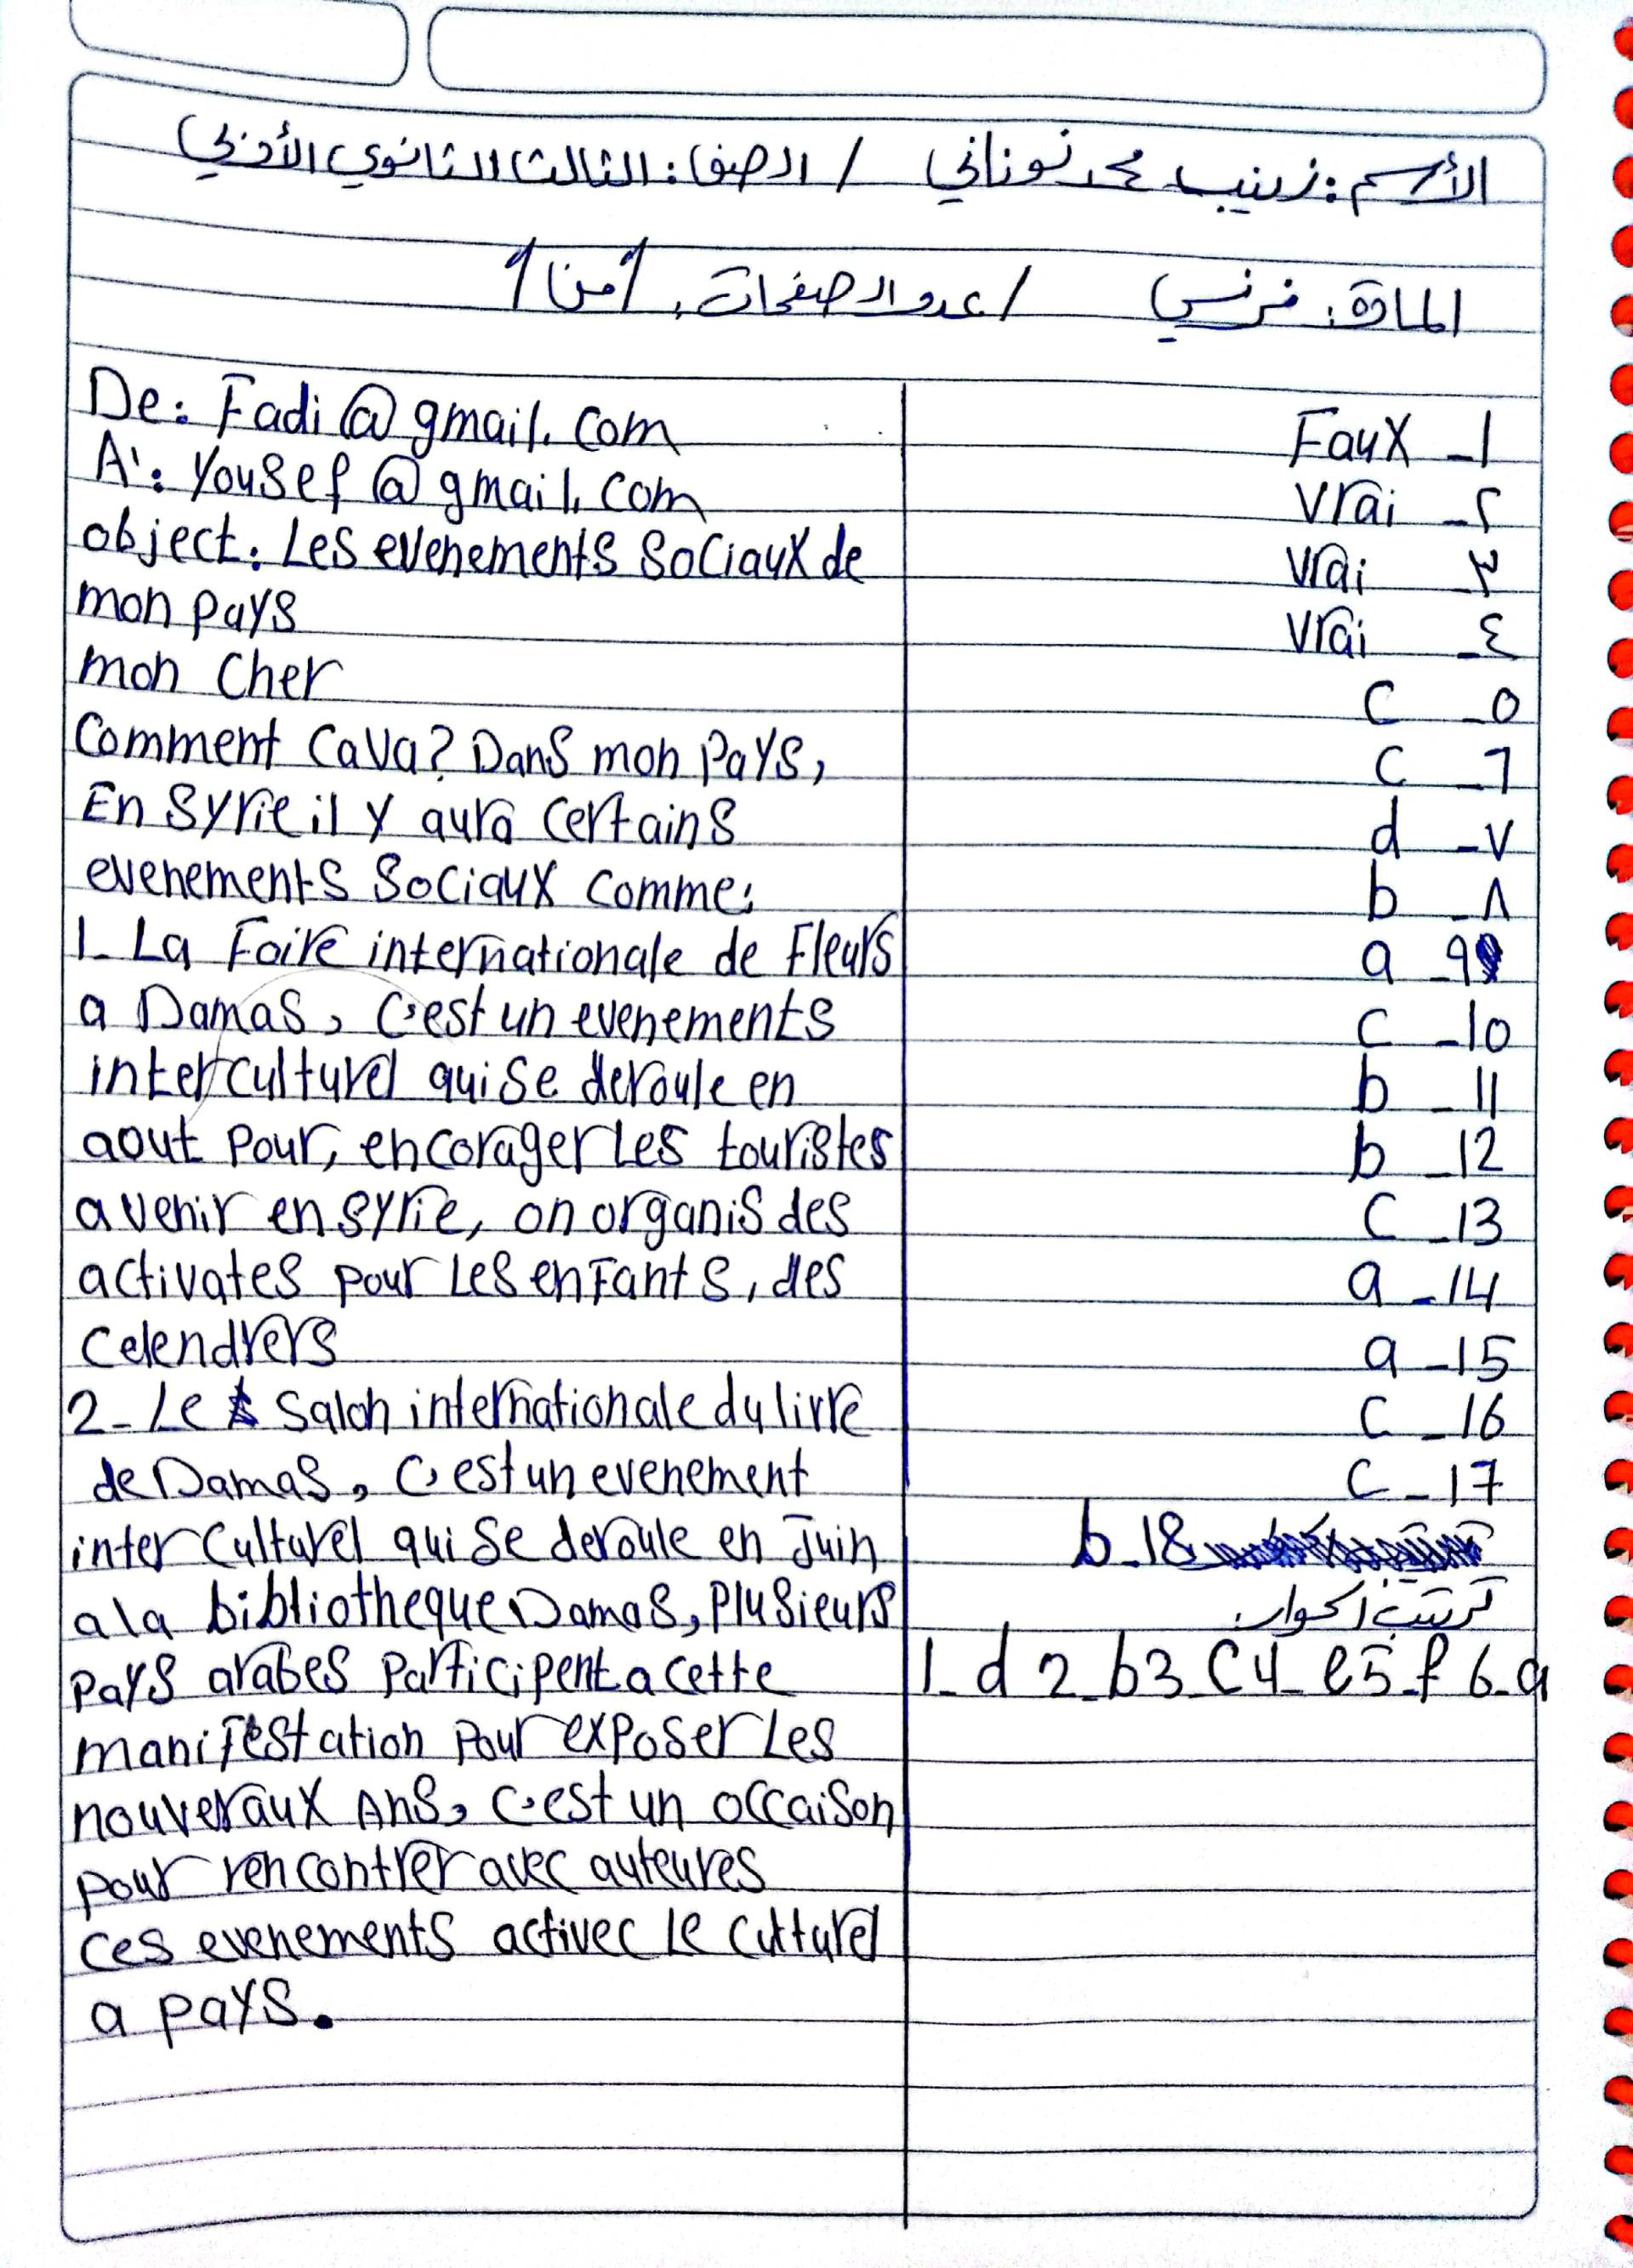 الأسم: زينب محمد نوناني / الصف: الثالث الثانوي الأدبي
المادة: فرنسي / عدد الصفحات: 1 من 1
De: Fadi@gmail.com
A': Yousef@gmail.com
object: Les evenements Sociaux de
mon pays
mon Cher
Comment Cava? Dans mon Pays,
En Syrie il y aura certains
evenements Sociaux comme:
1- La Foire internationale de Fleurs
a Damas, c'est un evenements
interculturel qui Se deroule en
aout Pour, encorager Les touristes
a venir en syrie, on organis des
activates pour Les enfants, des
Celendrers
2- Le Salon internationale du livre
de Damas, c'est un evenement
inter Culturel qui Se deroule en Juin
a la bibliotheque Damas, Plusieurs
pays arabes Participent a cette
manifestation Pour exposer Les
nouveraux Ans, c'est un occaison
pour rencontrer avec auteures
ces evenements activec Le culturel
a pays.
Faux _ 1
Vrai _ ٢
Vrai _ ٣
Vrai _ ٤
C _ ٥
C _ ٦
d _ ٧
b _ ٨
a _ 9
C _ 10
b _ 11
b _ 12
C _ 13
a _ 14
a _ 15
C _ 16
C _ 17
b _ 18
ترتيب الحوار:
1_ d 2_ b 3_ C 4_ e 5_ f 6_ a